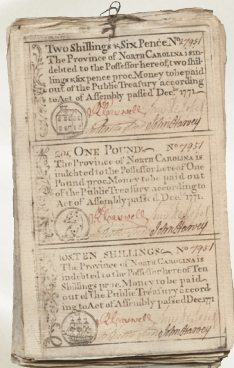 Two Shillings & Six Pence. No 7951
The Province of NORTH CAROLINA is in-
debted to the Possessor hereof, two shill-
ings & six pence proc. Money to be paid
out of the Public Treasury according
to Act of Assembly passed Decr. 1771.
John Harvey
ONE POUND No 7951
The Province of NORTH CAROLINA is
indebted to the Possessor here of One
Pound proc. Money to be paid out
of the Public Treasury according to
Act of Assembly passed Decr. 1771.
John Harvey
TEN SHILLINGS No 7951
The Province of NORTH CAROLINA is
indebted to the Possessor here of Ten
Shillings proc. Money to be paid
out of the Public Treasury accord-
ing to Act of Assembly passed Decr. 1771
John Harvey